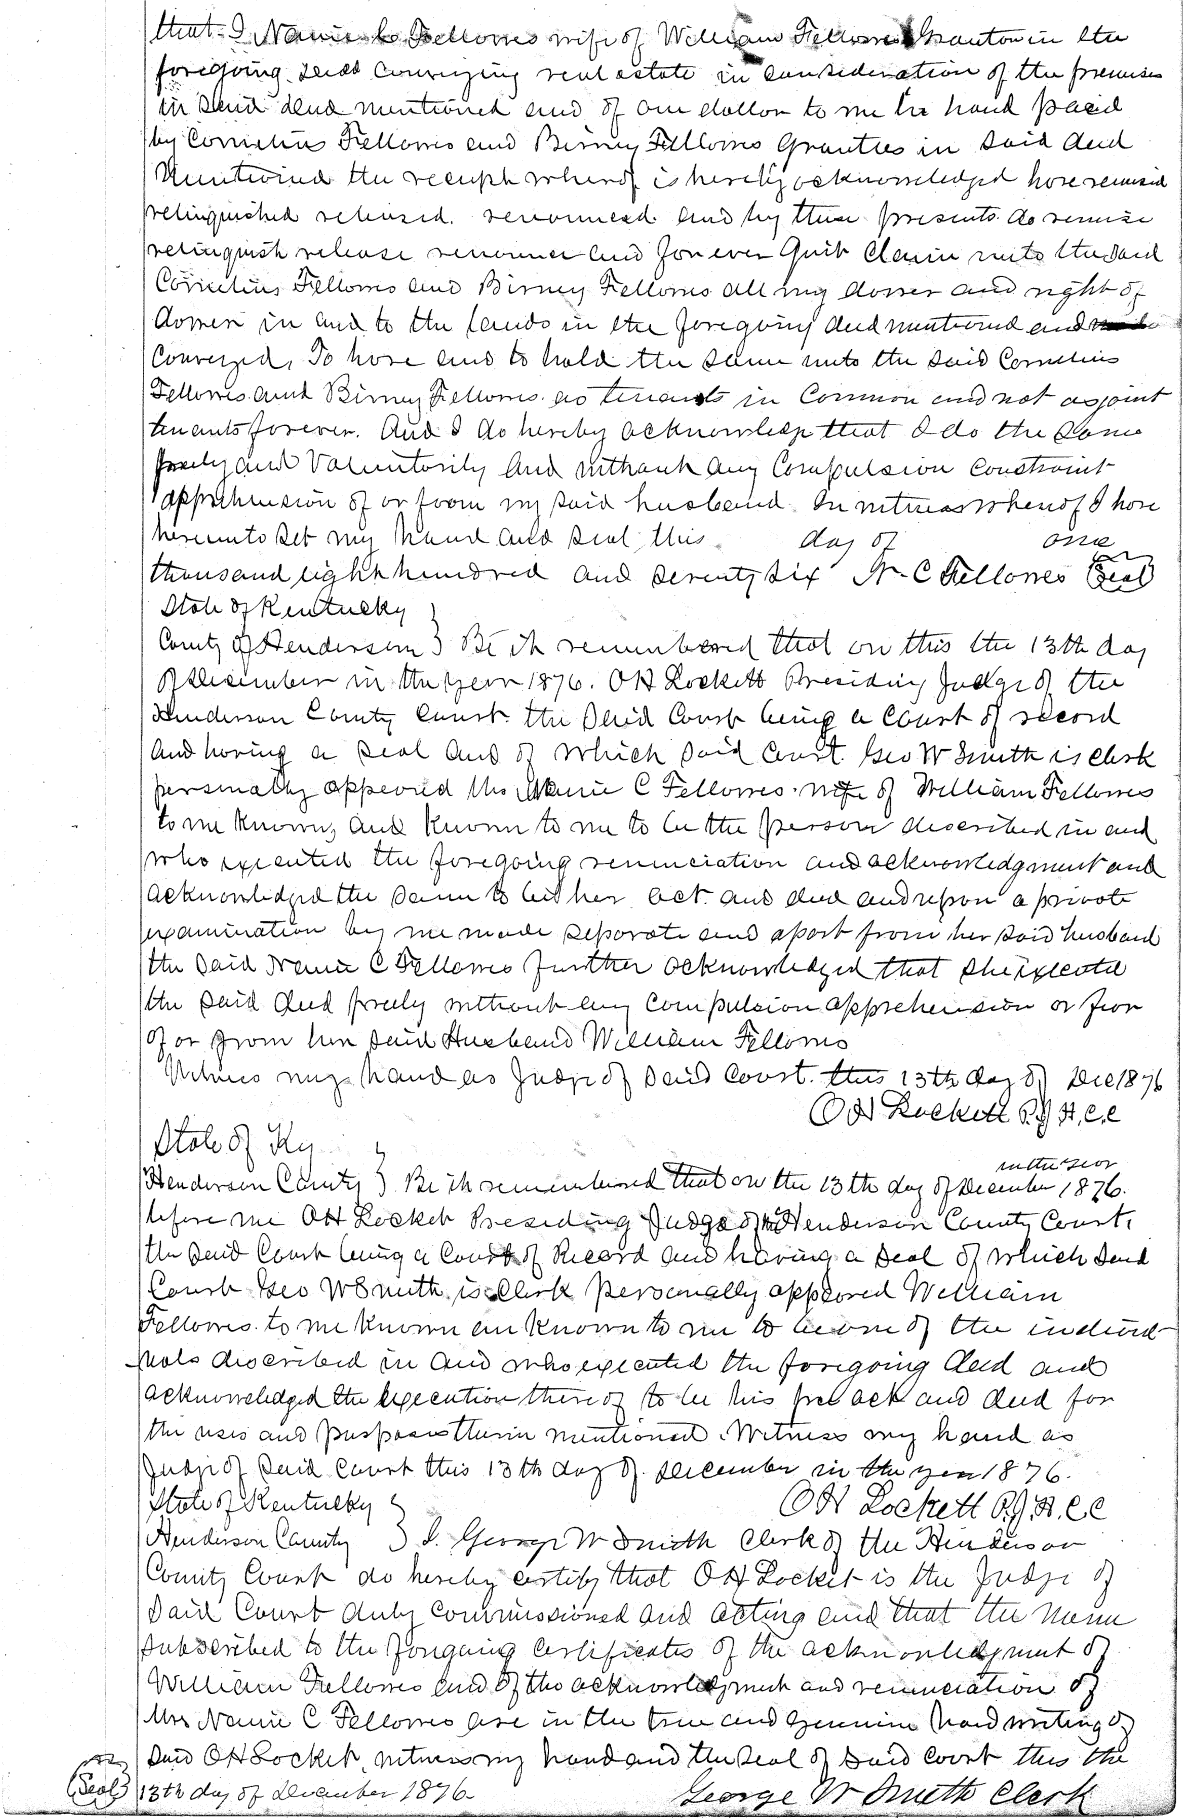 that I Namie C Fellows wife of William Fellows Grantor in the
foregoing deed conveying real estate in consideration of the premises
in said deed mentioned and of one dollar to me in hand paid
by Cornelius Fellows and Birney Fellows Grantees in said deed
mentioned the receipt whereof is hereby acknowledged have remised
relinquished released renounced and by these presents do remise
relinquish release renounce and forever Quit Claim unto the said
Cornelius Fellows and Birney Fellows all my dower and right of
dower in and to the lands in the foregoing deed mentioned and
conveyed, To have and to hold the same unto the said Cornelius
Fellows and Birney Fellows as tenants in Common and not as joint
tenants forever. And I do hereby acknowledge that I do the same
freely and Voluntarily and without any Compulsion constraint
apprehension of or from my said husband. In witness whereof I have
hereunto set my hand and seal this day of one
thousand eight hundred and seventy six N. C Fellows (Seal)
State of Kentucky }
County of Henderson } Be it remembered that on this the 13th day
of December in the year 1876. OH Lockett Presiding Judge of the
Henderson County Court. the said Court being a Court of record
and having a seal and of which said Court Geo W Smith is clerk
personally appeared Mrs Namie C Fellows wife of William Fellows
to me known, and known to me to be the person described in and
who executed the foregoing renunciation and acknowledgment and
acknowledged the same to be her act and deed and upon a private
examination by me made separate and apart from her said husband
the said Namie C Fellows further acknowledged that she executed
the said deed freely without any compulsion apprehension or fear
of or from her said Husband William Fellows
Witness my hand as Judge of said Court. this 13th day of Dec 1876
OH Lockett P.J H.C.C
State of Ky }
in the year
Henderson County } Be it remembered that on the 13th day of December 1876.
before me OH Locket Presiding Judge of the Henderson County Court,
the said Court being a Court of Record and having a seal of which said
Court Geo W Smith is Clerk personally appeared William
Fellows to me known an known to me to be one of the individ
uals described in and who executed the foregoing deed and
acknowledged the execution thereof to be his free act and deed for
the uses and purposes therein mentioned. Witness my hand as
Judge of said Court this 13th day of December in the year 1876.
State of Kentucky } OH Lockett P.J.H.C.C
Henderson County } I. George W Smith Clerk of the Henderson
County Court do hereby certify that OH Locket is the Judge of
said Court duly commissioned and acting and that the name
subscribed to the forgoing certificates of the acknowledgment of
William Fellows and of the acknowledgment and renunciation of
Mrs Namie C Fellows are in the true and genuine hand writing of
said OH Locket, witness my hand and the seal of said Court this the
(Seal) 13th day of December 1876. George W Smith Clerk